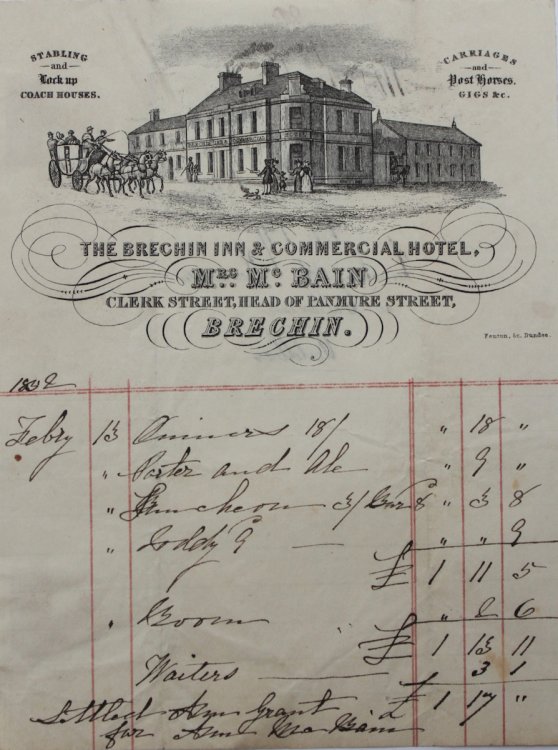 STABLING
and
Lock up
COACH HOUSES.
CARRIAGES
and
Post Horses.
GIGS &c.
THE BRECHIN INN & COMMERCIAL HOTEL,
MRS. Mc. BAIN
CLERK STREET, HEAD OF PANMURE STREET,
BRECHIN.
Fenton, Sc. Dundee.
Febry 13 Dinners 18/ " 18 "
" Porter and Ale " 9 "
" Luncheon 3/ 8 " 3 8
" Toddy 9 — " " 9
£ 1 11 5
" Room " 2 6
£ 1 13 11
Waiters — 3 1
£ 1 17 "
Settled Grant
for Mc Bain